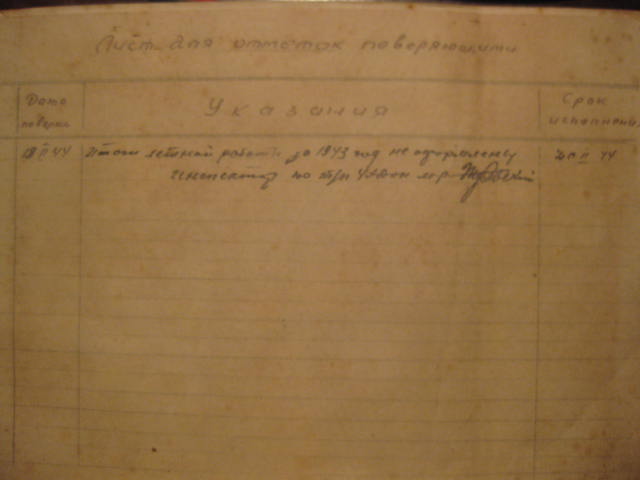 Лист для отметок поверяющими
Дата поверки
Указания
Срок исполнения
18 II 44 Итоги летной работы за 1943 год не оформлены До II 44
Инспектор по т/п